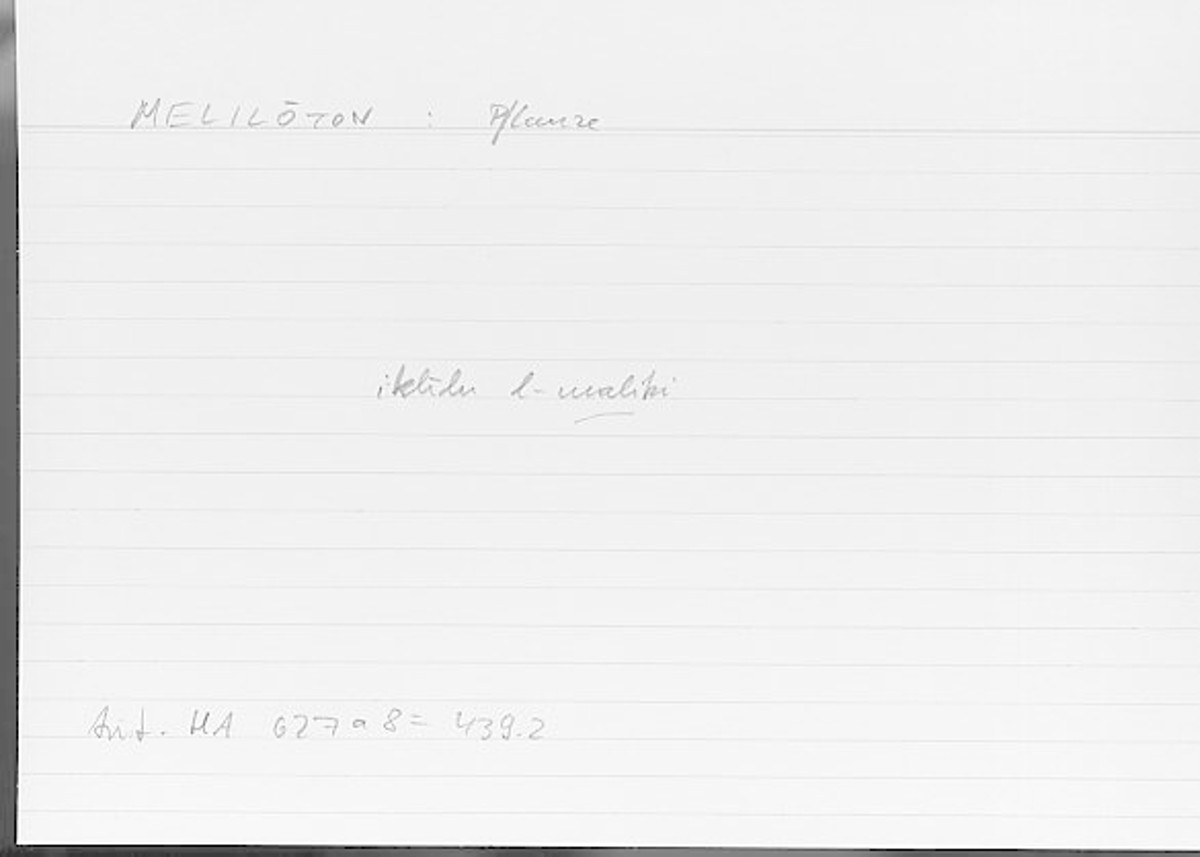 MELILŌTON : Pflanze
iklīlu l-maliki
Arist. HA 627a8 = 439.2